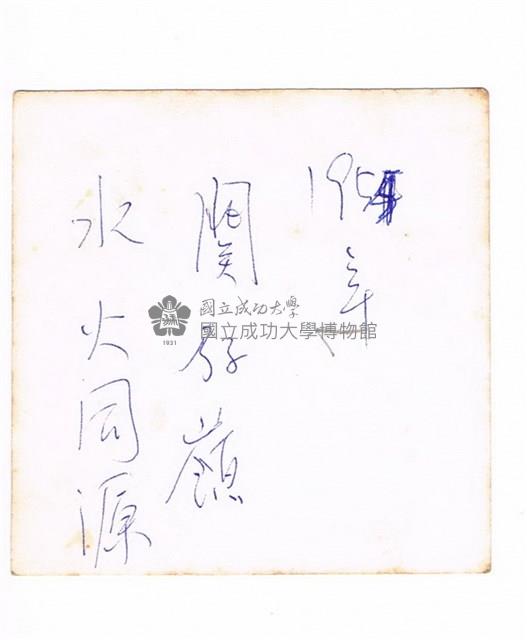 1954年
關仔嶺
水火同源
國立成功大學
國立成功大學博物館
1931